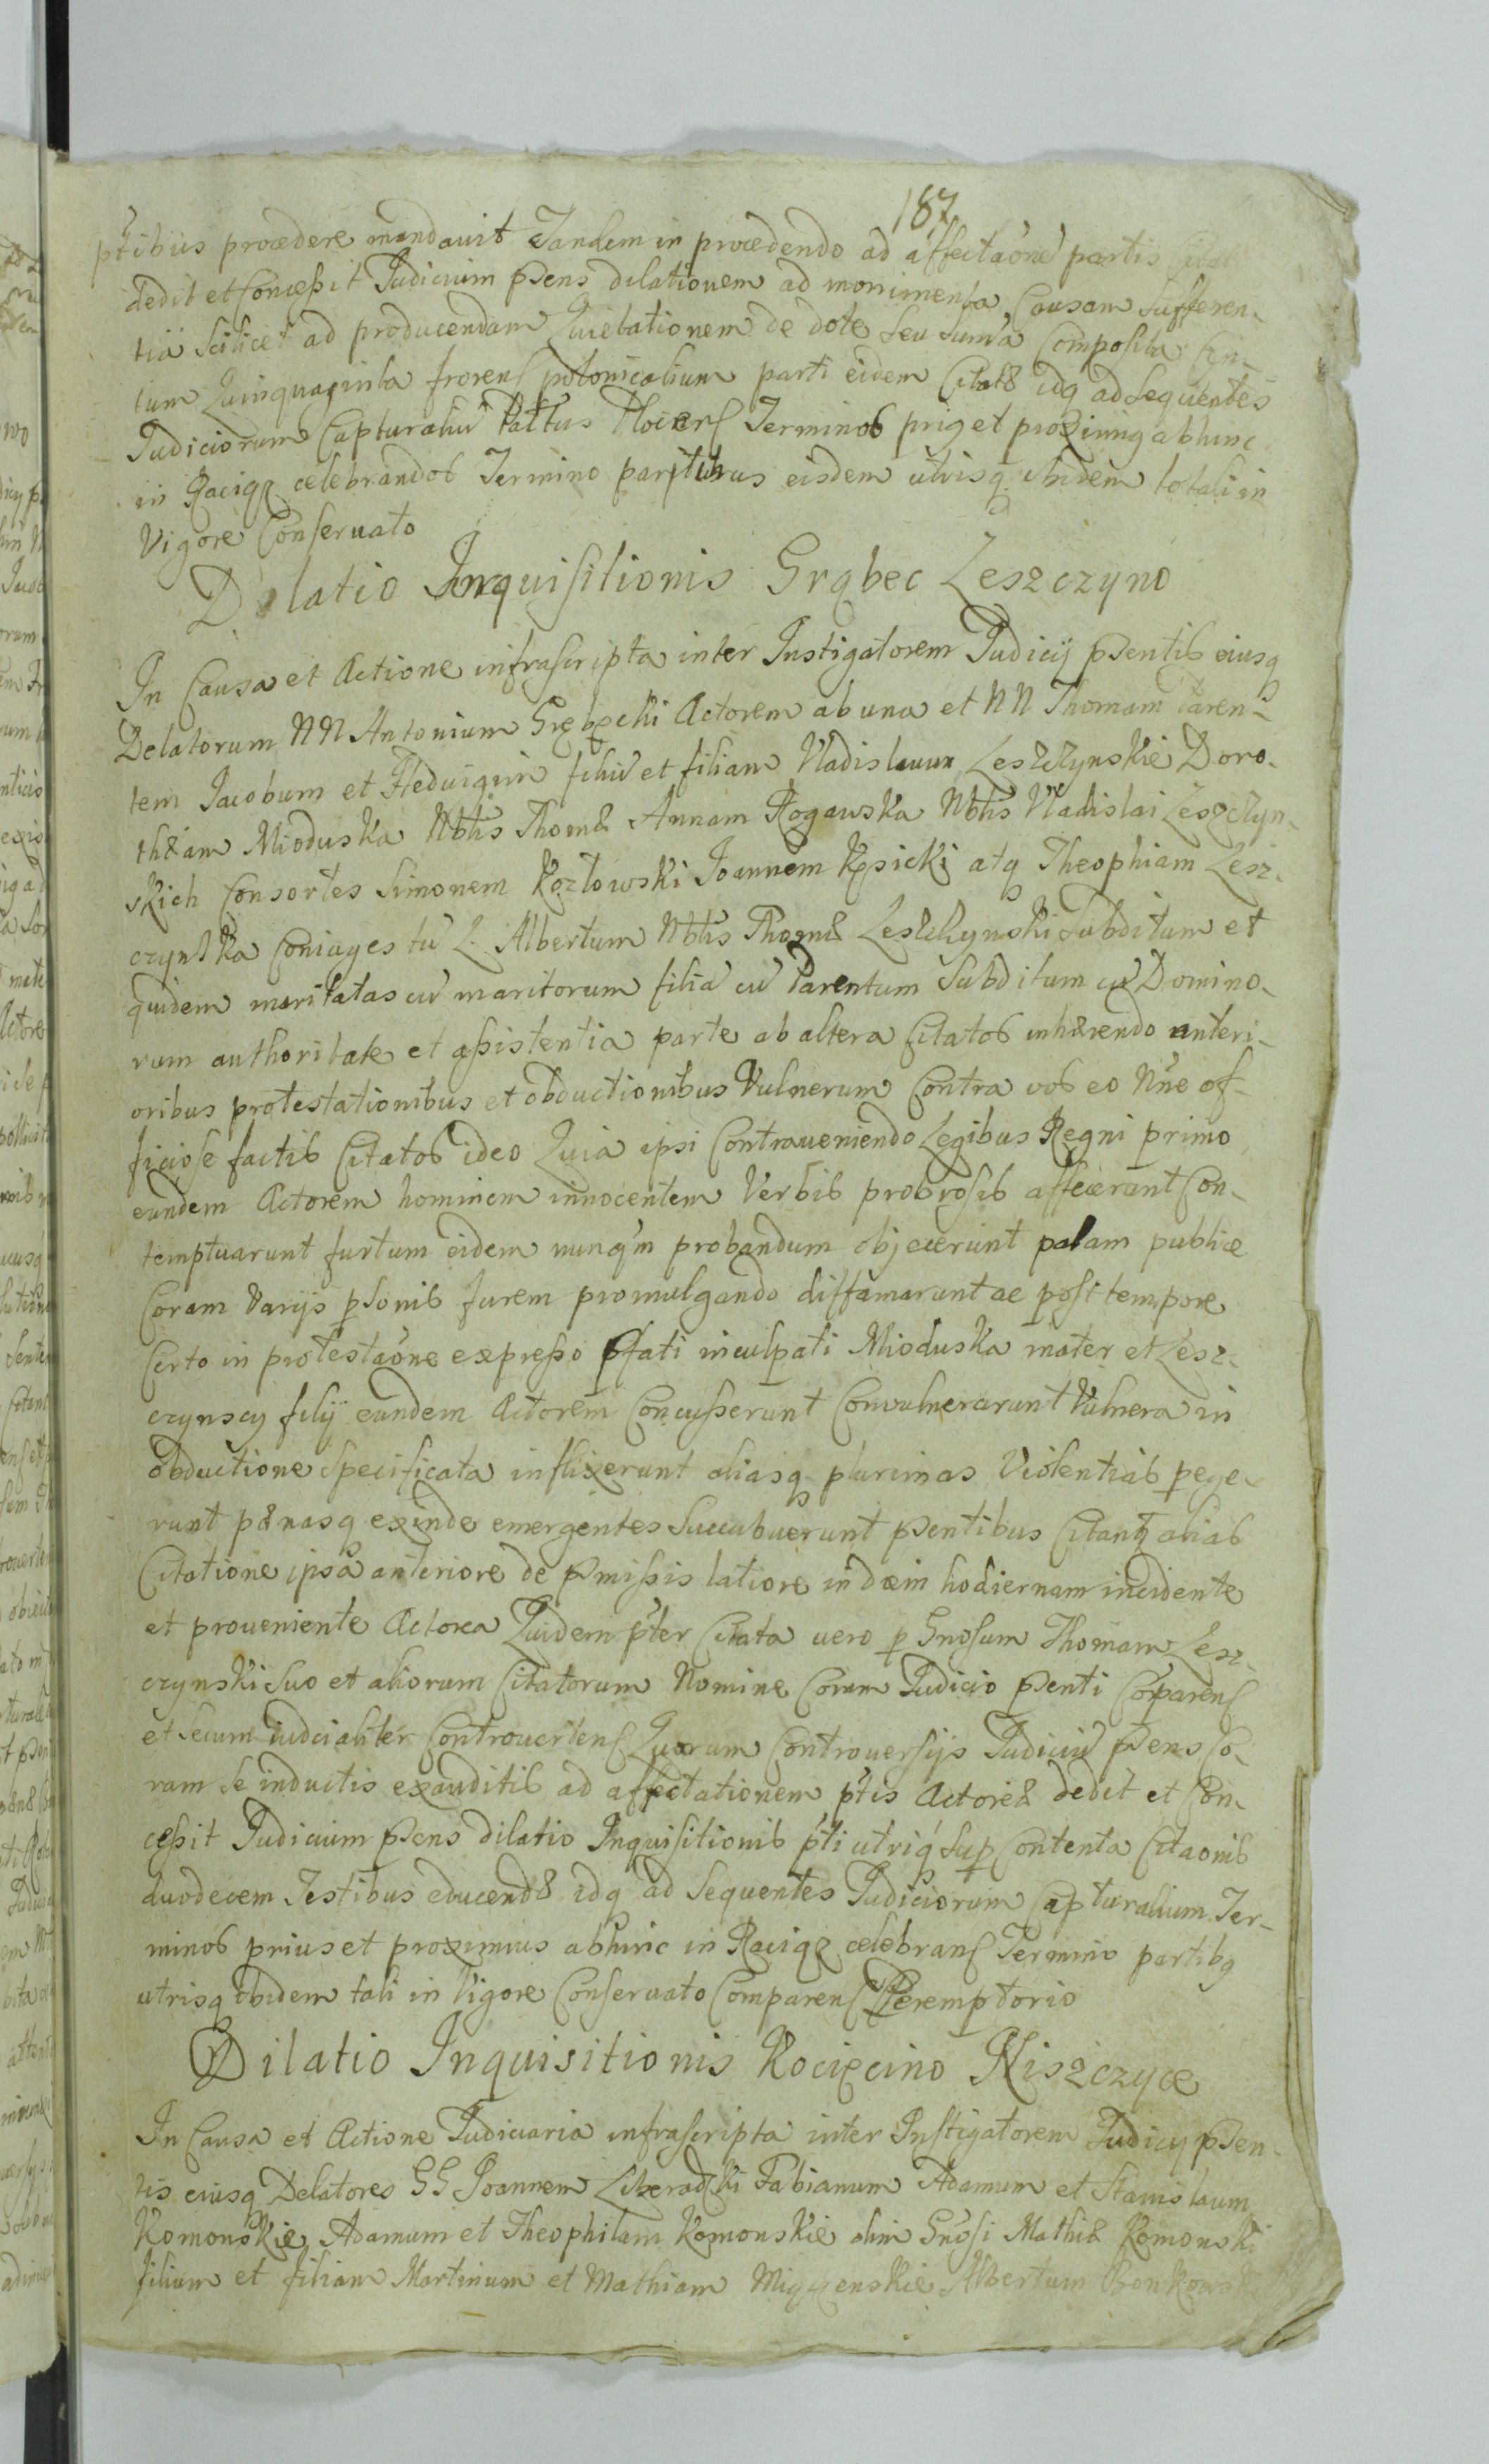 187
ptibus procedere mandavit Tandem in procedendo ad affectaõne partis
dedit et Concessit Judicium pñens dilationem ad monimenta Causam sufferen-
tia scilicet ad producendam Quietationem de dote seu suma Composita Cen-
tum Quinquaginta frorens polonicalium parti eidem Citatæ idq ad sequentes
Judiciorum Capturaliũ Paltus Plocens Terminos prig et proxinig abhinc
in Raciąz celebrandos Termino partibus eisdem utrisq ibidem totali in
Vigore Conservato
Dilatio Inquisitionis Grąbec Leszczyno
In Causa et Actione infrascripta inter Instigatorem Judicij pñentis eiusq
Delatorum NN Antonium Grębecki Actorem ab una et NN Thomam Paren-
tem Jacobum et Heduigim filiũ et filiam Vladislaum Leszczynskie Doro-
theam Mioduska Nbtis Thomæ Annam Rogawska Nbtis Vladislai Leszczyn-
skich Consortes Simonem Kozłowski Joannem Kęsicki atq Theophiam Lesz-
czynska Coniuges tũ L. Albertum Nbtis Thomæ Leszczynski Subditum et
quidem maritatas cũ maritorum filiã cũ Parentum Subditum cũ Domino-
rum authoritate et assistentia parte ab altera Citatos inhærendo anteri-
oribus protestationibus et obductionibus Vulnerum Contra vos eo Nñe of-
ficiose factis Citatos ideo Quia ipsi Contraveniendo Legibus Regni primo
eundem Actorem hominem innocentem Verbis probrosis affecerunt Con-
temptuarunt furtum eidem nunq̃m probandum objecerunt palam publice
Coram Varijs psonis furem promulgando diffamarunt ac post tempore
Certo in protestaõne expresso pfati inculpati Mioduska mater et Lesz-
czynscy filij eundem Actorem Concusserunt Convulnerarunt Vulnera in
obductione specificata inflixerunt aliasq plurimas Violentias pege-
runt pænasq exinde emergentes Succubuerunt pñentibus Citantz alias
Citatione ipsa anteriore de pmissis latiore in diem hodiernam incidente
et proveniente Actorea Quidem pter Citata vero p Gnosum Thomam Lesz-
czynski suo et aliorum Citatorum Nomine Coram Judicio pñenti Cõparens
et secum iudicialiter Controvertens Quarum Controversijs Judiciũ pñens Co-
ram se inductis exauditis ad affectationem ptis Actoreæ dedit et Con-
cessit Judicium pñens dilatio Inquisitionis pti utriq sup Contenta Citaonis
duodecem Testibus educendæ idq ad sequentes Judiciorum Capturalium Ter-
minos prius et proximius abhinc in Raciąz celebrans Termino partibq
utrisq ibidem tali in Vigore Conservato Comparens Peremptorio
Dilatio Inquisitionis Kocięcino Niszczyce
In Causa et Actione Judiciaria infrascripta inter Instigatorem Judicij pñen-
tis eiusq Delatores GG Joannem Liberadzki Fabianum Adamum et Stanislaum
Komonskie Adamum et Theophilam Komonskie olim Gnosi Mathiæ Komonski
filium et filiam Martinum et Mathiam Albertum Bonkowski